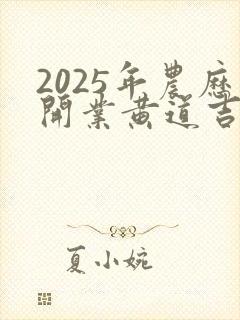 2025年農歷
開業黄道吉
夏小婉